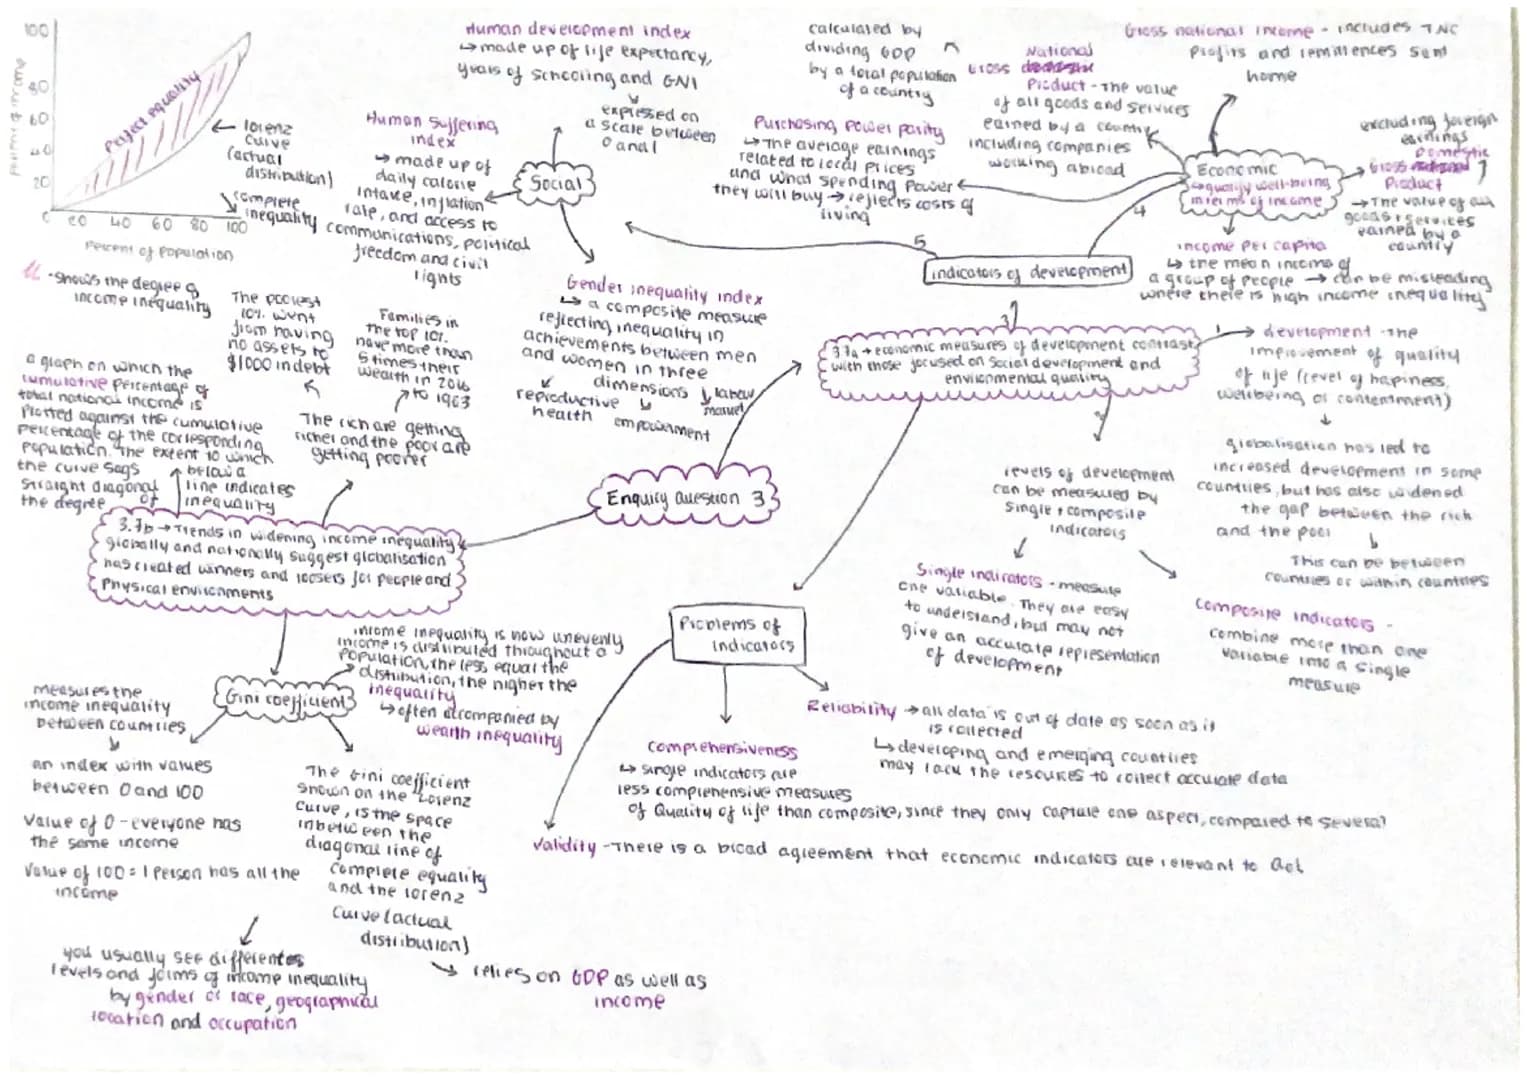 100
80
60
40
20
0
20 40 60 80 100
percent of income
Percent of population
Perfect equality
lorenz
curve
(actual
distribution)
complete
inequality
- shows the degree of
income inequality
a graph on which the
cumulative percentage of
total national income is
plotted against the cumulative
percentage of the corresponding
population. The extent to which
the curve sags below a
straight diagonal line indicates
the degree of inequality
The poorest
10% went
from having
no assets to
$1000 in debt
Families in
the top 10%
have more than
5 times their
wealth in 2016
to 1963
The rich are getting
richer and the poor are
getting poorer
3.7b → Trends in widening income inequality
globally and nationally suggest globalisation
has created winners and loosers for people and
Physical environments
Human development index
↳ made up of life expectancy,
years of schooling and GNI
expressed on
a scale between
0 and 1
Human suffering
index
→ made up of
daily calorie
intake, inflation
rate, and access to
communications, political
freedom and civil
rights
Social
Gender inequality index
↳ a composite measure
reflecting inequality in
achievements between men
and women in three
dimensions
reproductive
health
empowerment
labour
market
calculated by
dividing GDP
by a total population
of a country
National
Gross domestic
Product - the value
of all goods and services
earned by a country
including companies
working abroad
Gross national income - includes TNC
profits and remittences sent
home
Purchasing Power parity
↳ The average earnings
related to local prices
and what spending power
they will buy → reflects costs of
living
Economic
↳ quantify well-being
in terms of income
excluding foreign
earnings
Domestic
Gross national
Product
→ The value of all
goods + services
earned by a
country
income per capita
↳ the mean income of
a group of people → can be misleading
where there is high income inequality
4
5
indicators of development
3
3.7a → economic measures of development contrast
with those focused on social development and
environmental quality
1
development - The
improvement of quality
of life (level of hapiness,
wellbeing or contentment)
globalisation has led to
increased development in some
countries, but has also widened
the gap between the rich
and the poor
This can be between
countries or within countries
2
levels of development
can be measured by
single + composite
indicators
Single indicators - measure
one variable. They are easy
to understand, but may not
give an accurate representation
of development
Composite indicators -
combine more than one
variable into a single
measure
Enquiry question 3
Problems of
indicators
Reliability → all data is out of date as soon as it
is collected
↳ developing and emerging countries
may lack the resources to collect accurate data
Comprehensiveness
↳ single indicators are
less comprehensive measures
of Quality of life than composite, since they only capture one aspect, compared to several
Validity - There is a broad agreement that economic indicators are relevant to
Gini coefficient
income inequality is how unevenly
income is distributed throughout a
population, the less equal the
distribution, the higher the
inequality
↳ often accompanied by
wealth inequality
measures the
income inequality
between countries
an index with values
between 0 and 100
Value of 0 - everyone has
the same income
Value of 100 = 1 person has all the
income
you usually see differentes
levels and forms of income inequality
by gender or race, geographical
location and occupation
The Gini coefficient
shown on the Lorenz
curve, is the space
inbetween the
diagonal line of
complete equality
and the lorenz
curve (actual
distribution)
relies on GDP as well as
income